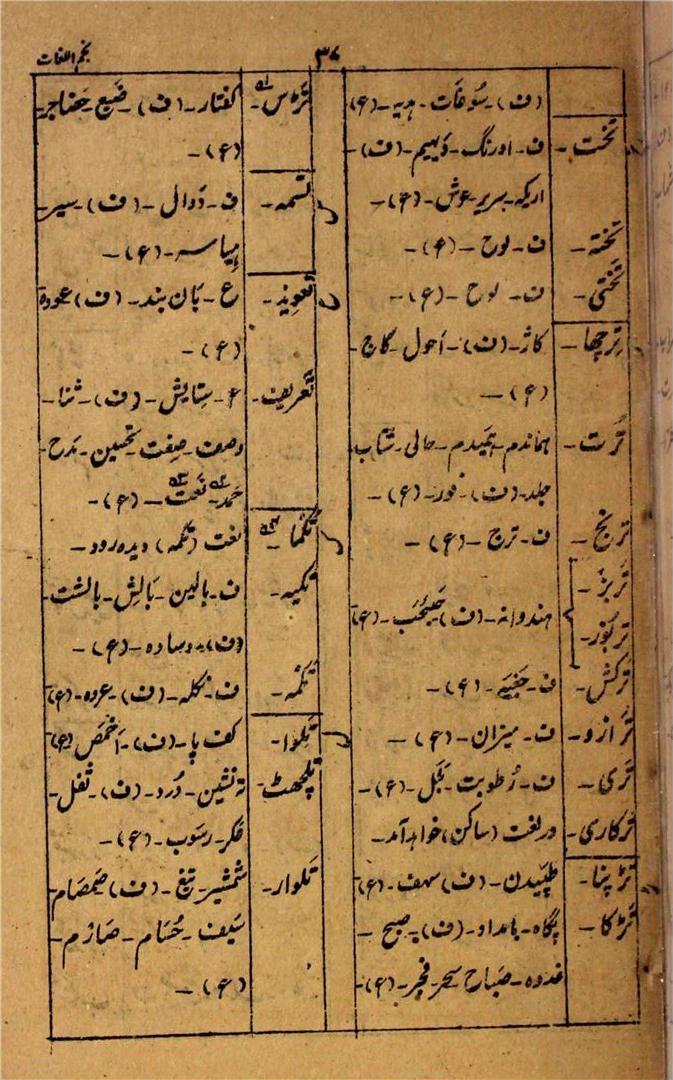 نجم اللغات
۳۷
(ف) - سوغات - ہدیہ - (ع)
تخت - ف - اورنگ - دَیہیم - (ف) -
اریکہ - سریر - عرش - (ع) -
تختہ - ف - لوح - (ع) -
تختی - ف - لوح - (ع) -
تِرچھا - کاژ - (ف) - اَحول - کاج -
(ع) -
تُرت - ہماندم - ہمیدم - حالی - شتاب
جلد - (ف) - فور - (ع) -
ترنج - ف - ترج - (ع) -
تربز -
تربوز -
ہندوانہ - (ف) - (ع)
تَرکش - ف - جَعبَہ - (ع) -
تَرازو - ف - میزان - (ع) -
تَری - ف - رُطوبت - (ع) -
تَرکاری - درلغت (ساگن) خواہد آمد -
تڑپنا - طپیدن - (ف) - (ع)
تڑکا - پگاہ - بامداد - (ف) - صبح -
غدوہ - صَباح - سحر - فجر - (ع) -
کفتار - (ف) - ضبع - حضاجر -
(ع) -
تسمہ - ف - دَوال - (ف) - سیر -
(ع) -
تعویذ - ع - بَان بند - (ف) عوذة
(ع) -
تعریف - ع - سِتایش - (ف) - ثنا -
وصف - صِفت - تحسین - مَدح -
حَمد - نَعت - (ع) -
تکما - لغت (تکمہ) دیدہ رود -
تکیہ - ف - بالین - بَالِش - بالشت -
(ف) - وسادہ - (ع) -
تکمہ - ف - (ف) - عروہ - (ع)
تلوا - کف پا - (ف) - اَخمَص (ع)
تلچھٹ - تہ نشین - دُرد - (ف) - ثفل -
عکر - رسوب - (ع) -
تلوار - شمشیر - تیغ - (ف) صَمصَام
سَیف - حُسَام - صَارِم -
(ع) -